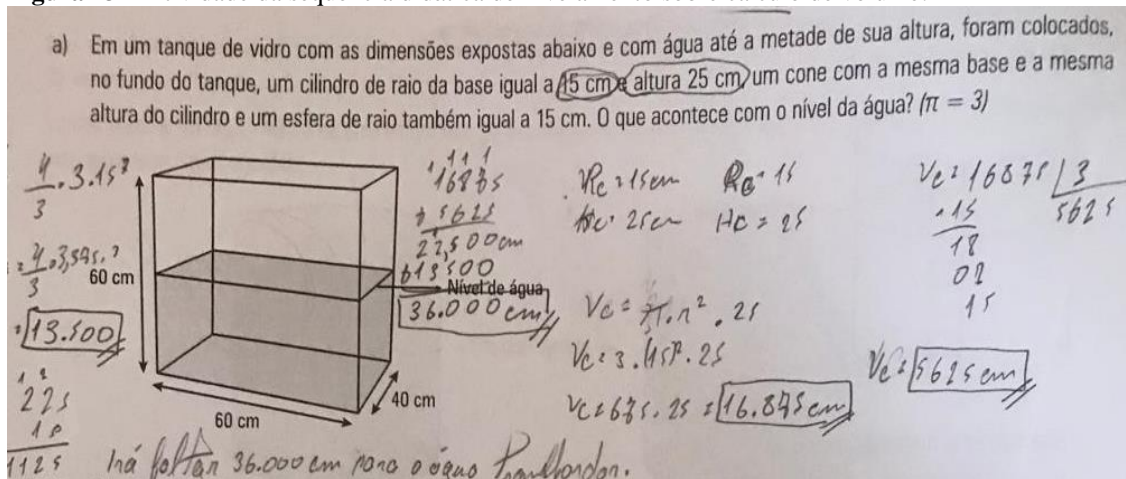 a) Em um tanque de vidro com as dimensões expostas abaixo e com água até a metade de sua altura, foram colocados,
no fundo do tanque, um cilindro de raio da base igual a 15 cm e altura 25 cm, um cone com a mesma base e a mesma
altura do cilindro e um esfera de raio também igual a 15 cm. O que acontece com o nível da água? (π = 3)
4/3 . 3.15³
13.500
225
1125
60 cm
60 cm
40 cm
Nível de água
16875
+ 5625
22,500cm
13500
36.000 cm
Rc = 15cm
Hc = 25cm
Hc = 25
Vc = π.r² . 25
Vc = 3.(15)².25
Vc = 675.25 = 16.875cm
Vc = 16875 | 3
5625
-15
18
15
Vc = 5625 cm
Irá faltar 36.000 cm para o